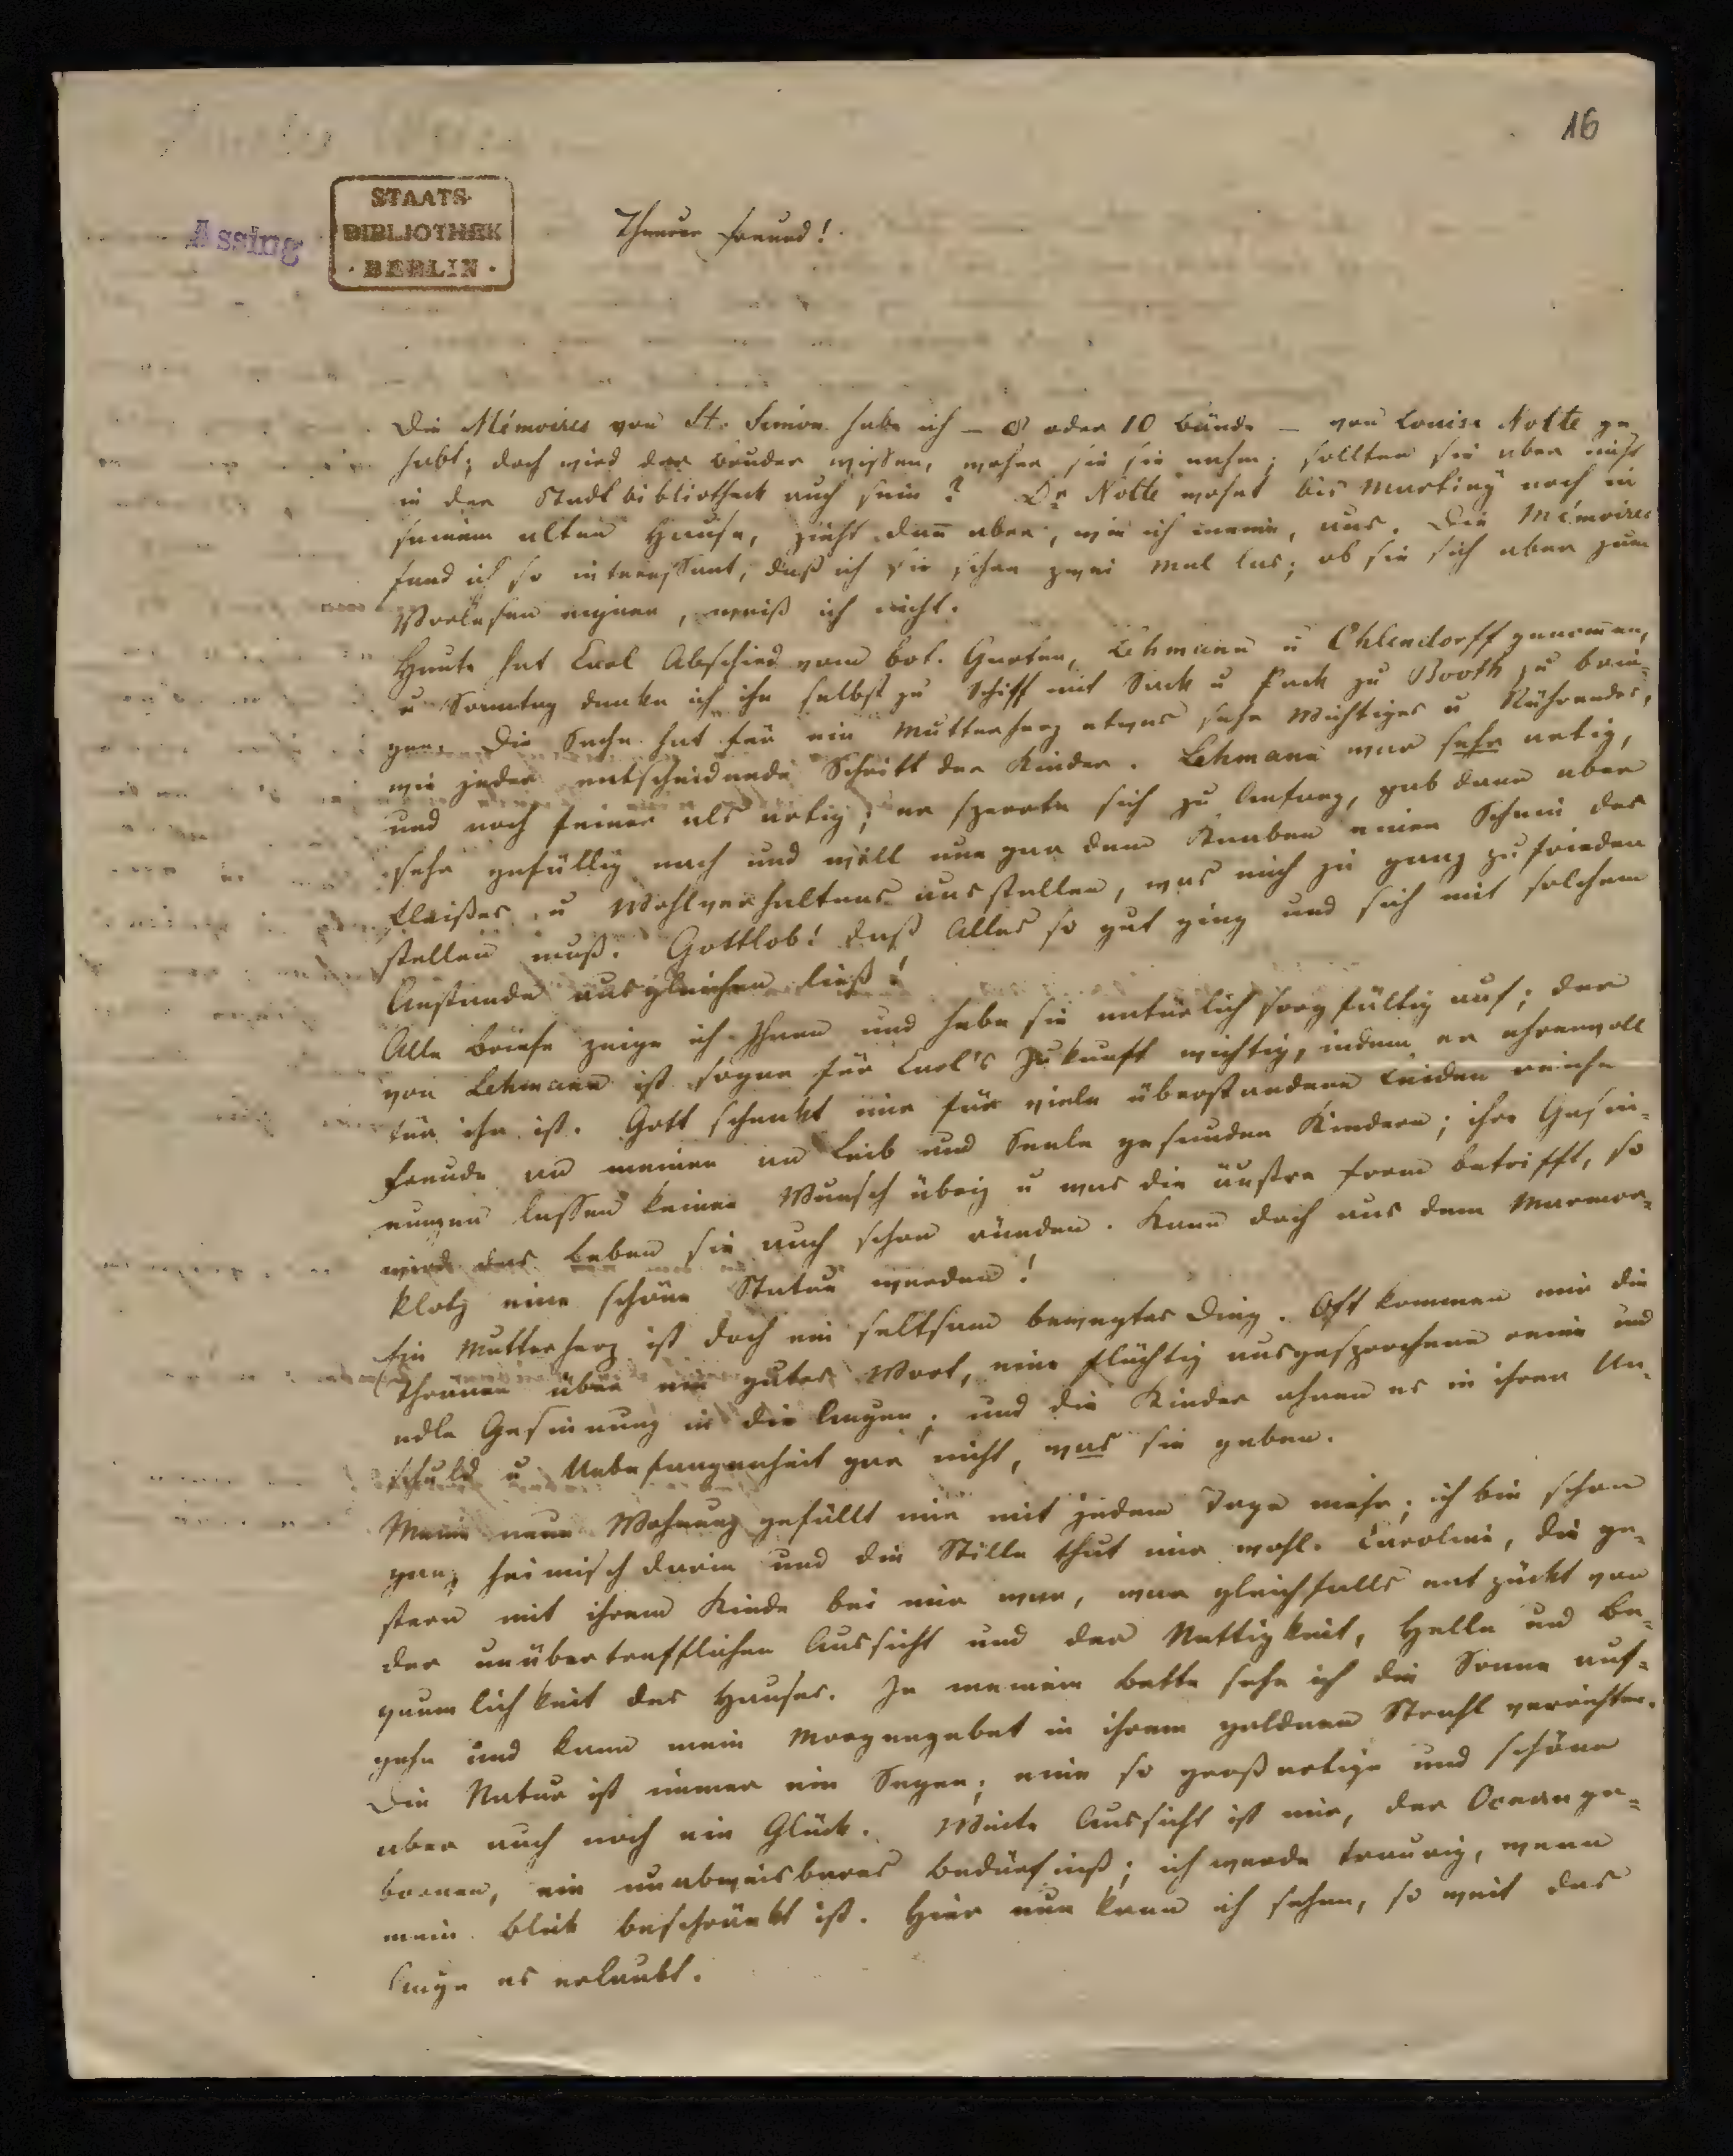 16
Assing
STAATS-
BIBLIOTHEK
· BERLIN ·
Theurer Freund!
Die Mémoires von St. Simon habe ich – 8 oder 10 Bände – von Louise Nolte ge
habt; doch wird der Bruder wissen, woher sie sie nahm; sollten sie aber nicht
in der Stadtbibliotheck auch sein? Dr Nolte wohnt bis Martiny noch in
seinem alten Hause, zieht dan̅ aber, wie ich meine, aus. Die Mémoires
fand ich so interessant, daß ich sie schon zwei Mal las; ob sie sich aber zum
Vorlesen eignen, weiß ich nicht.
Heute hat Carl Abschied vom bot. Garten, Lehmann u Ohlendorff genom̅en,
u Sonntag denke ich ihn selbst zu Schiff mit Sack u Pack zu Booth zu brin-
gen. Die Sache hat für ein Mutterherz etwas sehr Wichtiges u Rührendes,
wie jeder entscheidende Schritt der Kinder. Lehmann war sehr artig,
und noch feiner als artig; er sperrte sich zu Anfang, gab dann aber
sehr gefällig nach und will nun gar dem Knaben einen Schein des
Fleißes u Wohlverhaltens ausstellen, was mich ja ganz zufrieden
stellen muß. Gottlob! daß Alles so gut ging und sich mit solchem
Anstande ausgleichen ließ!
Alle Briefe zeige ich Ihnen und habe sie natürlich sorgfältig auf; der
von Lehmann ist sogar für Carl's Zukunft wichtig, indem er ehrenvoll
für ihn ist. Gott schenkt mir für viele überstandene Leiden reiche
Freude an meinen an Leib und Seele gesunden Kindern; ihre Gesin-
nungen lassen keinen Wunsch übrig u was die äußre Form betrifft, so
wird das Leben sie auch schon ründen. Kann doch aus dem Marmor-
klotz eine schöne Statue werden!
Ein Mutterherz ist doch ein seltsam bewegtes Ding. Oft kommen mir die
Thränen über ein gutes Wort, eine flüchtig ausgesprochene reine und
edle Gesinnung in die Augen; und die Kinder ahnen es in ihrer Un-
schuld u Unbefangenheit gar nicht, was sie geben.
Meine neue Wohnung gefällt mir mit jedem Tage mehr; ich bin schon
ganz heimisch darin und die Stille thut mir wohl. Caroline, die ge-
stern mit ihrem Kinde bei mir war, war gleichfalls entzückt von
der unübertrefflichen Aussicht und der Nettigkeit, Helle und Be-
quemlichkeit des Hauses. In meinem Bette sehe ich die Sonne auf-
gehn und kann mein Morgengebet in ihrem goldnen Strahl verrichten.
Die Natur ist immer ein Segen; eine so großartige und schöne
aber auch noch ein Glück. Weite Aussicht ist mir, der Oceange-
bornen, ein unabweisbares Bedürfniß; ich werde traurig, wenn
mein Blick beschränkt ist. Hier nun kann ich sehen, so weit das
Auge es erlaubt.